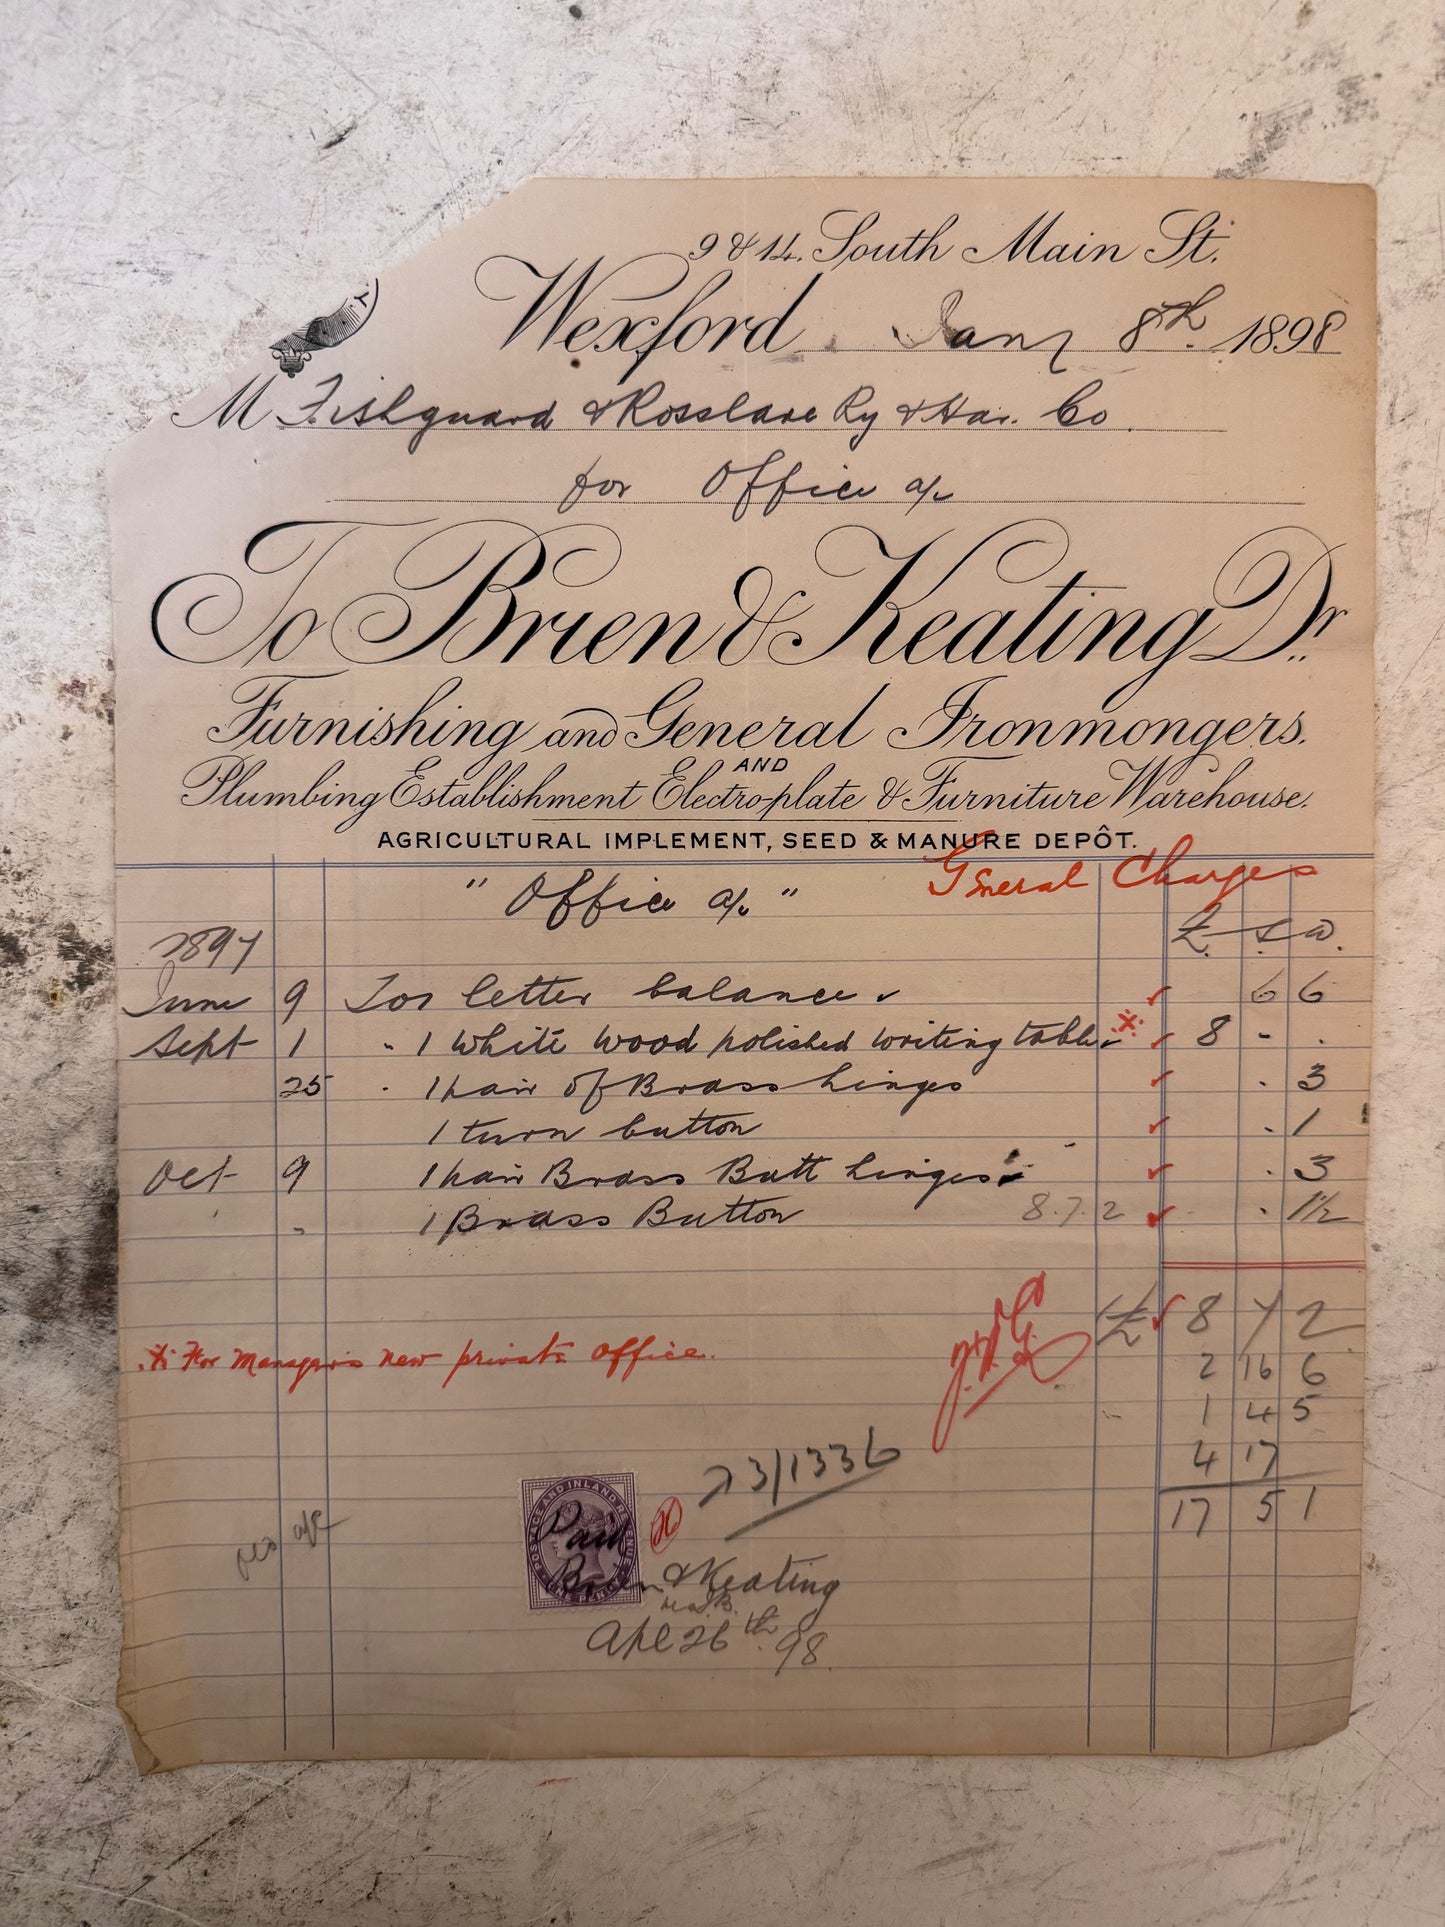 9 & 14. South Main St.
Wexford Jany 8th. 1898
Y
M Fishguard & Rosslare Ry & Har. Co
for Office a/c
To Brien & Keating Dr.
Furnishing and General Ironmongers.
AND
Plumbing Establishment Electro-plate & Furniture Warehouse.
AGRICULTURAL IMPLEMENT, SEED & MANURE DEPÔT.
"Office a/c" General Charges
1897 £. s d.
June 9 For letter balance 6 6
Sept 1 " 1 White wood polished writing table 8 - .
25 " 1 pair of Brass hinges . 3
1 turn button . 1
Oct 9 1 pair Brass Butt hinges . 3
" 1 Brass Button 8.7.2 . 1½
£ 8 7 2
For Manager's new private office.
2 16 6
1 4 5
4 17
23/1336
17 5 1
POSTAGE AND INLAND REVENUE
ONE PENNY
Paid
Brien & Keating
Apl 26th. 98.